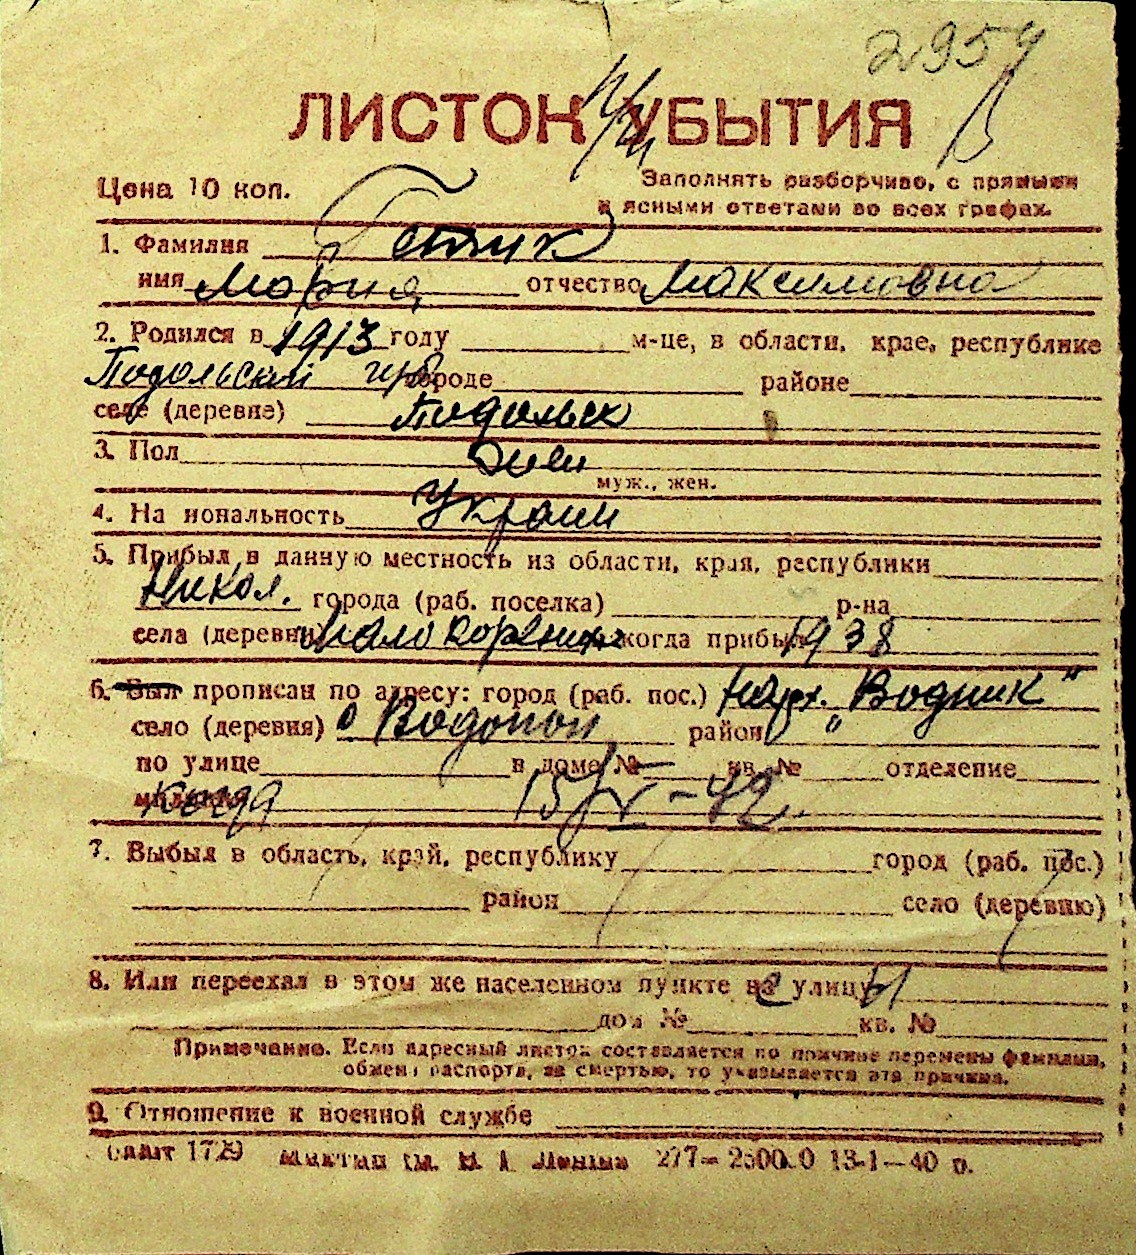 2959
ЛИСТОК УБЫТИЯ
Цена 10 коп.
Заполнять разборчиво, с прямыми
и ясными ответами во всех графах.
1. Фамилия Гетик
имя Мария отчество Максимовна
2. Родился в 1913 году м-це, в области, крае, республике
Подольский городе районе
селе (деревне) Подольск
3. Пол жен
муж., жен.
4. На иональность Украин
5. Прибыл в данную местность из области, края, республики
Никол. города (раб. поселка) р-на
села (деревни) когда прибыл 1938
6. Был прописан по адресу: город (раб. пос.) "Водник"
село (деревня) Водопой район
по улице в доме № кв. № отделение
когда 15/IV-42.
7. Выбыл в область, край, республику город (раб. пос.)
район село (деревню)
8. Или переехал в этом же населенном пункте на улицу
дом № кв. №
Примечание. Если адресный листок составляется по причине перемены фамилии,
обмена паспорта, за смертью, то указывается эта причина.
9. Отношение к военной службе
1729 277— 13-1—40 р.